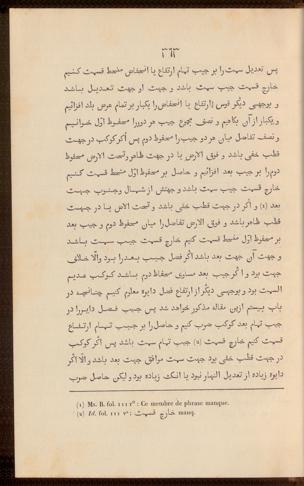 ٣٦٣
پس تعدیل سمت را بر جیب تمام ارتفاع یا انحطاط منحط قسمت کنیم
خارج قسمت جیب سمت باشد و جهت او جهت تعدیل باشد
و بوجهی دیگر قوس ارتفاع یا انحطاط را یکبار بر تمام عرض بلد افزائیم
و یکبار از آن بکاهیم و نصف مجموع جیب هر دو را محفوظ اول خوانیم
و نصف تفاضل میان هر دو جیب را محفوظ دوم پس اگر کوکب در جهت
قطب خفی باشد و فوق الارض یا در جهت ظاهر و تحت الارض محفوظ
دوم را بر جیب بعد افزائیم و حاصل بر محفوظ اول منحط قسمت کنیم
خارج قسمت جیب سمت باشد و جهتش از شمال و جنوب جهت
بعد (١) و اگر در جهت قطب خفی باشد و تحت الارض یا در جهت
قطب ظاهر باشد و فوق الارض تفاضل را میان محفوظ دوم و جیب بعد
بر محفوظ اول منحط قسمت کنیم خارج قسمت جیب سمت باشد
و جهت آن جهت بعد باشد اگر فضل جیب بعد را بود والّا خلاف
جهت بود و اگر جیب بعد مساوی محفوظ دوم باشد کوکب عدیم
السمت بود و بوجهی دیگر از ارتفاع فضل دایره معلوم کنیم چنانچه در
باب بیستم ازین مقاله مذکور خواهد شد پس جیب فضل دایر را در
جیب تمام بعد کوکب ضرب کنیم و حاصل را بر جیب تمام ارتفاع
قسمت کنیم خارج قسمت (٢) جیب تمام سمت باشد پس اگر کوکب
در جهت قطب خفی بود جهت سمت موافق جهت بعد باشد والّا اگر
دایره زیاده از تعدیل النهار نبود یا آنک زیاده بود و لیکن حاصل ضرب
(١) Ms. B. fol. 111 r° : Ce membre de phrase manque.
(٢) Id. fol. 111 v° : خارج قسمت manq.